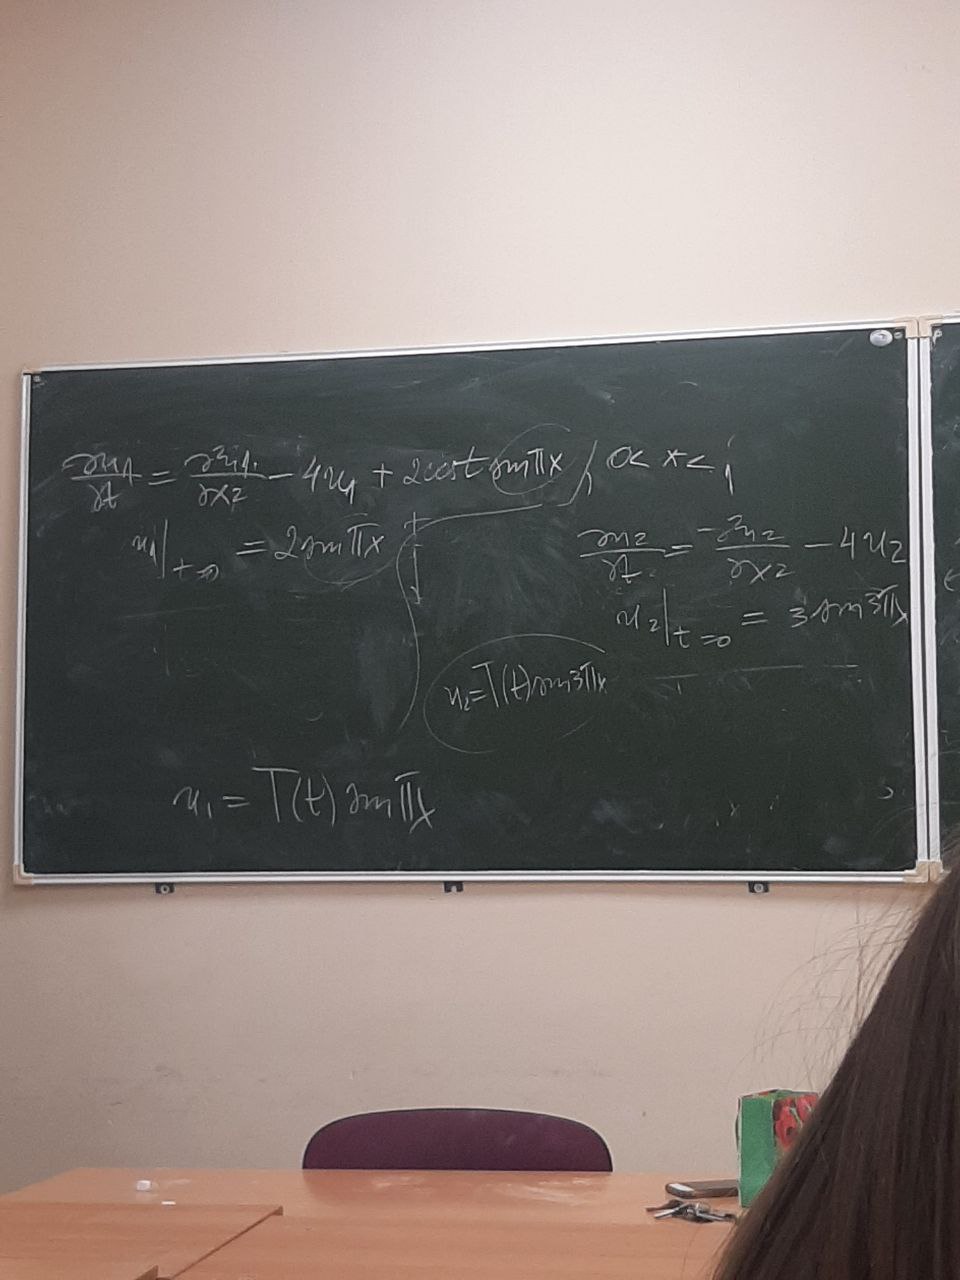 ∂u₁/∂t = ∂²u₁/∂x² - 4u₁ + 2cost sinπx, 0 < x < 1
u₁|t=0 = 2sinπx
∂u₂/∂t = ∂²u₂/∂x² - 4u₂
u₂|t=0 = 3 sin3πx
u₂=T(t)sin3πx
u₁ = T(t) sinπx